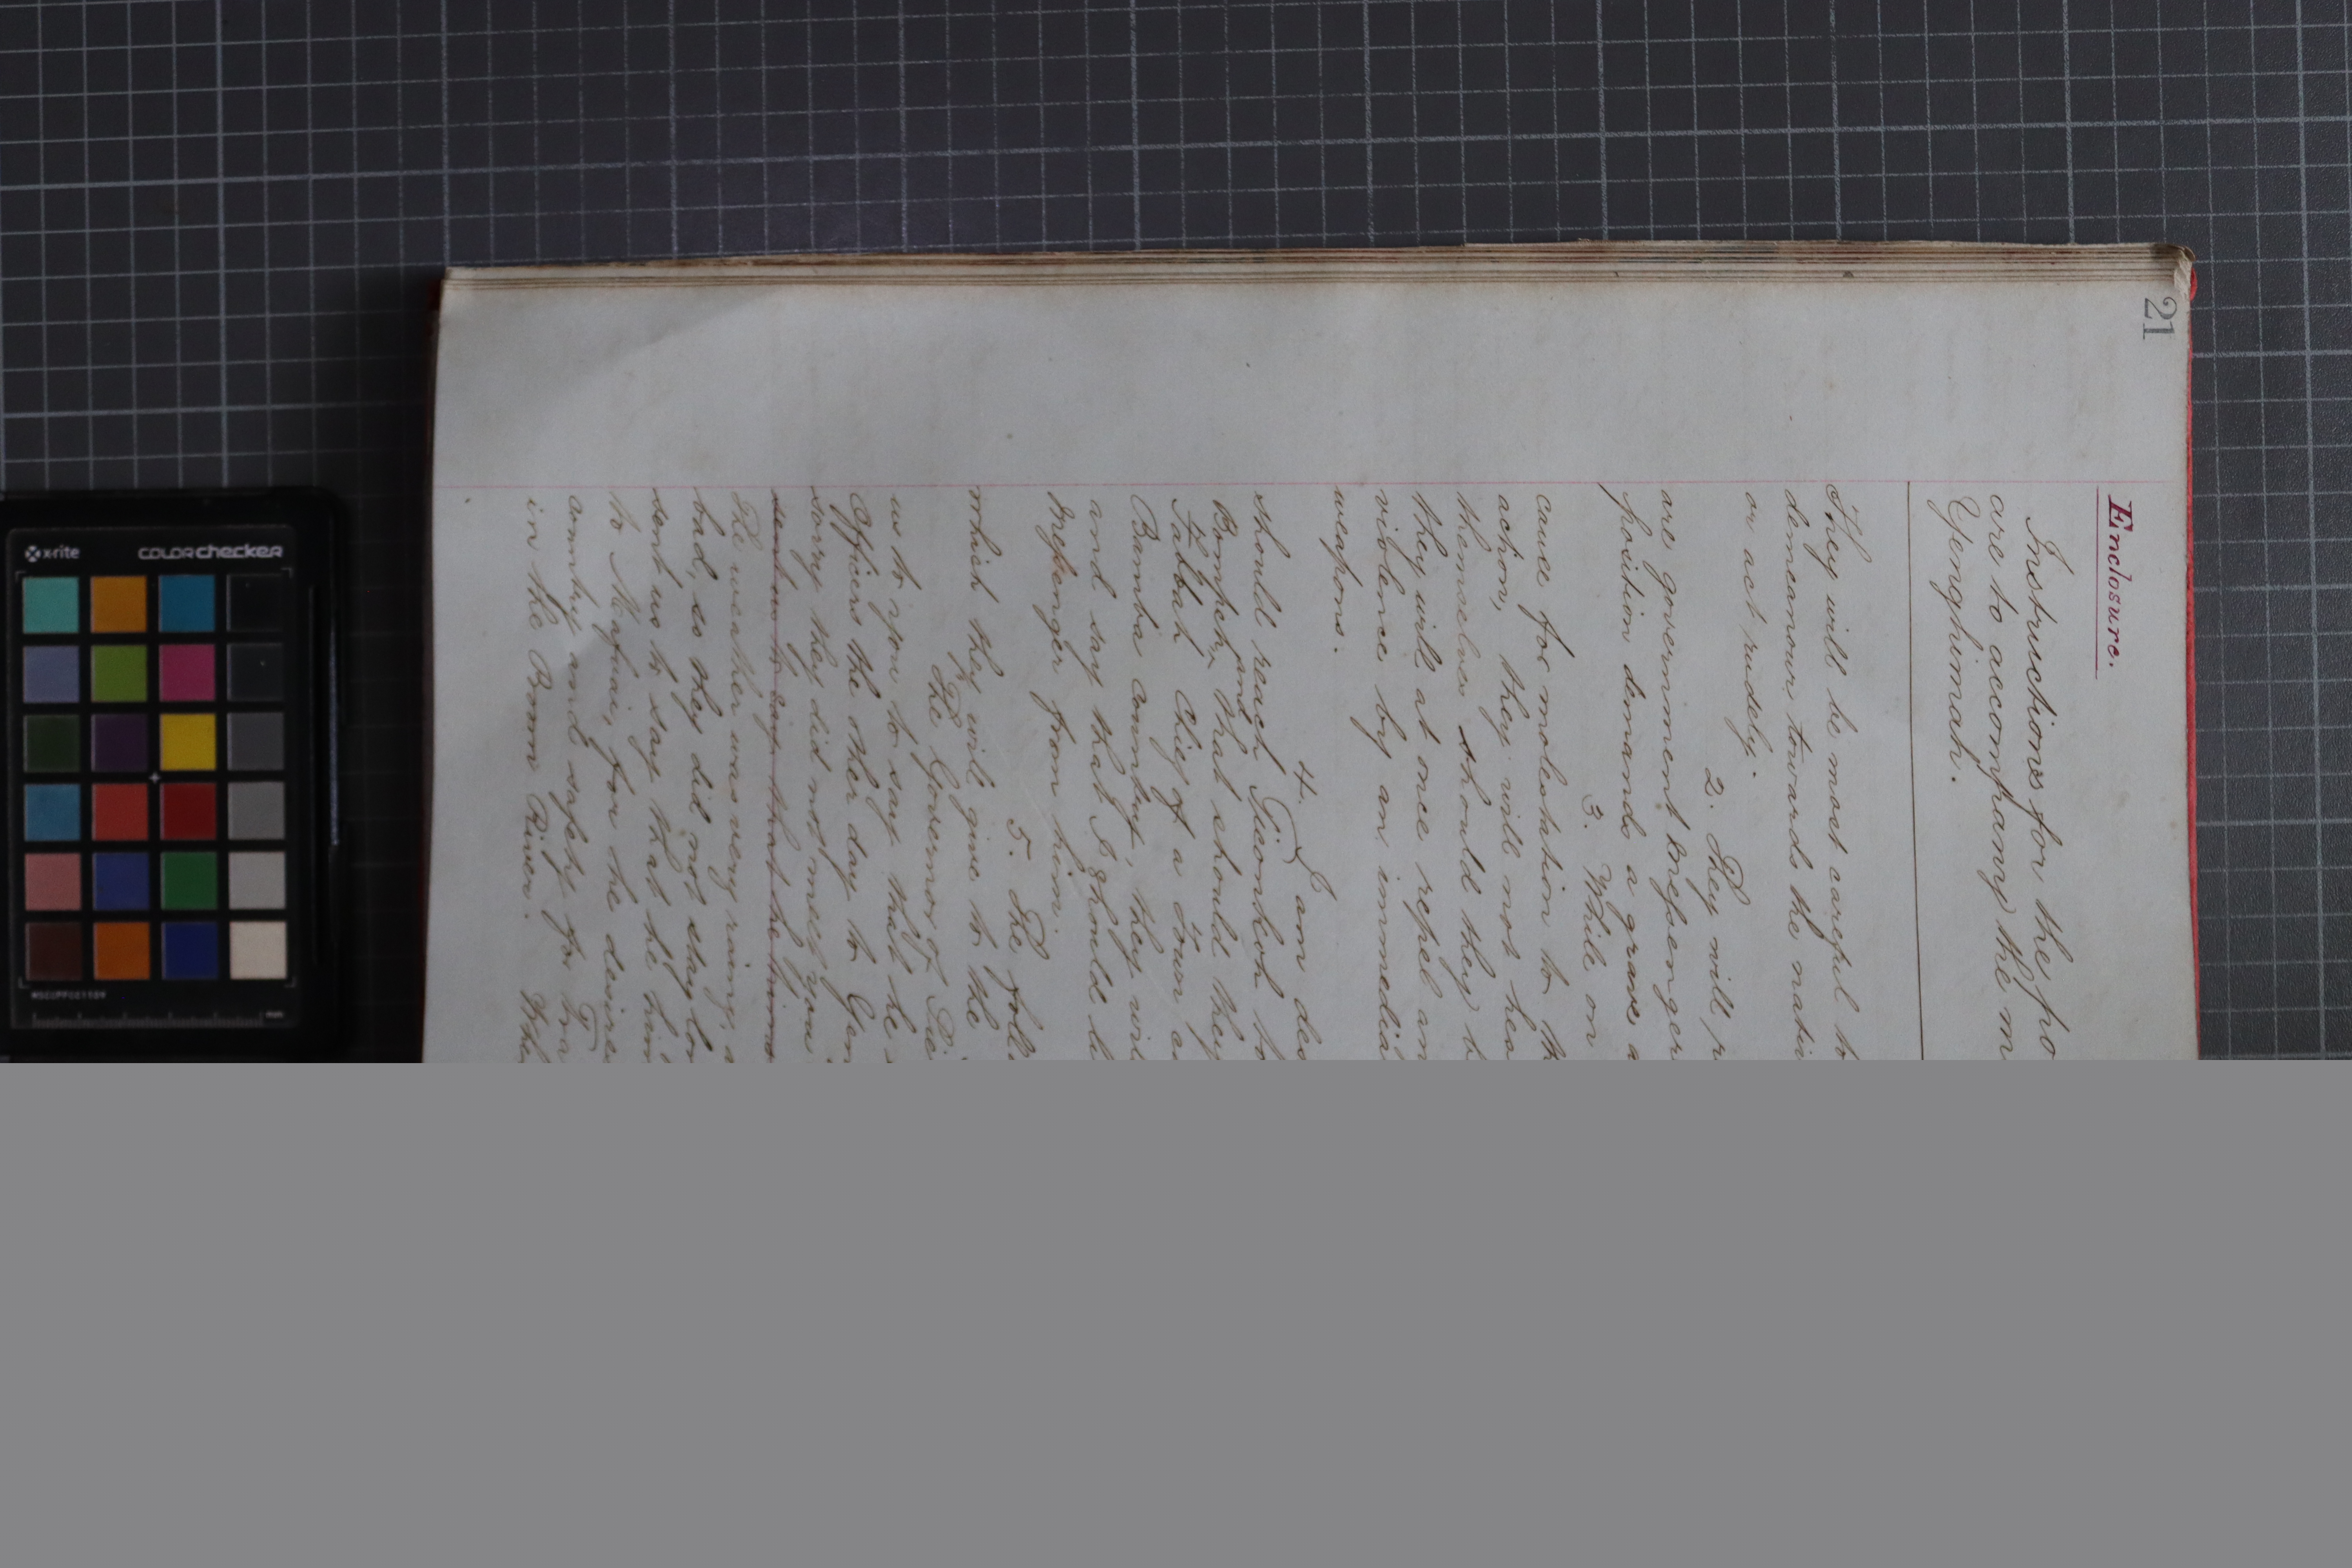 21
Enclosure.
Instructions for the po
are to accompany the m
Yenghimah.
They will be most careful to
demeanour towards the nativ
or act rudely.
2. They will p
are government messenger
position demands a grave a
3. While on
cause for molestation to th
action, they will not hes
themselves should they b
they will at once repel an
violence by an immedia
weapons.
4. I am des
should reach to
Bompeh, and that should they
Fattah Chief of a Town
Bamba country, they wil
and say that I should l
messenger from him.
5. The foll
which they will give to the
The Governor of Sie
us to you to say that he
Officers the other day to Yen
sorry they did not meet you
sent us to say that he
The weather was very rainy, a
bad, so they did not stay lon
sent us to say that he
to Mafuai, for he desires
country and safety for Tra
in the Boom River. Whe
x-rite colorchecker